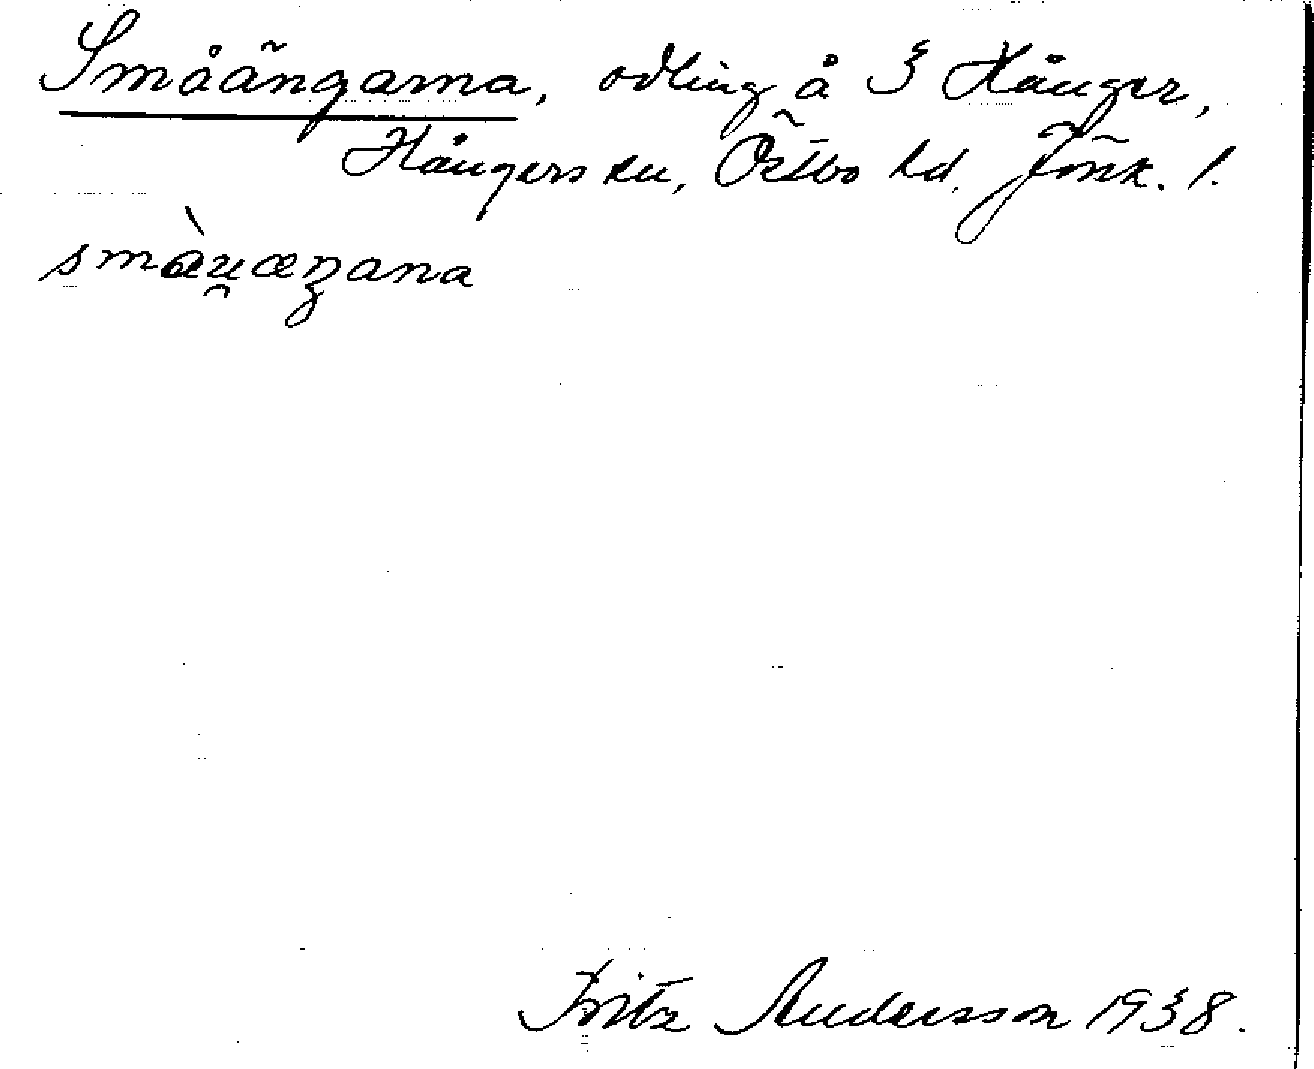 Småängarna, odling å § Hånger,
Hångers sn, Östbo hd. Jönk. l.
smàu̯æŋana
Fritz Andersson 1938.